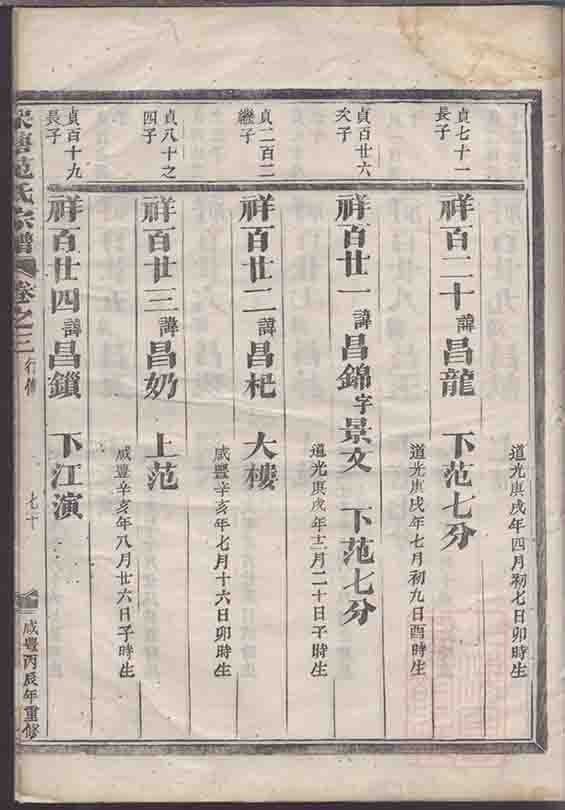 道光庚戌年四月初七日卯時生
貞七十一
長子
祥百二十 諱昌龍 下范七分
道光庚戌年七月初九日酉時生
貞百廿六
次子
祥百廿一 諱昌錦 字景文 下范七分
道光庚戌年十二月二十日子時生
貞二百二
繼子
祥百廿二 諱昌杞 大樓
咸豐辛亥年七月十六日卯時生
貞八十之
四子
祥百廿三 諱昌奶 上范
咸豐辛亥年八月廿六日子時生
貞百十九
長子
祥百廿四 諱昌鎖 下江演
范氏宗譜 卷之三 行傳 七十 咸豐丙辰年重修